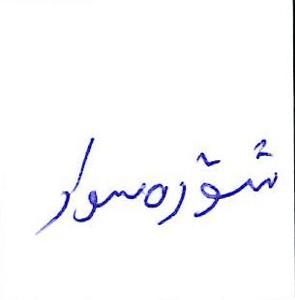 شۆرەسوار